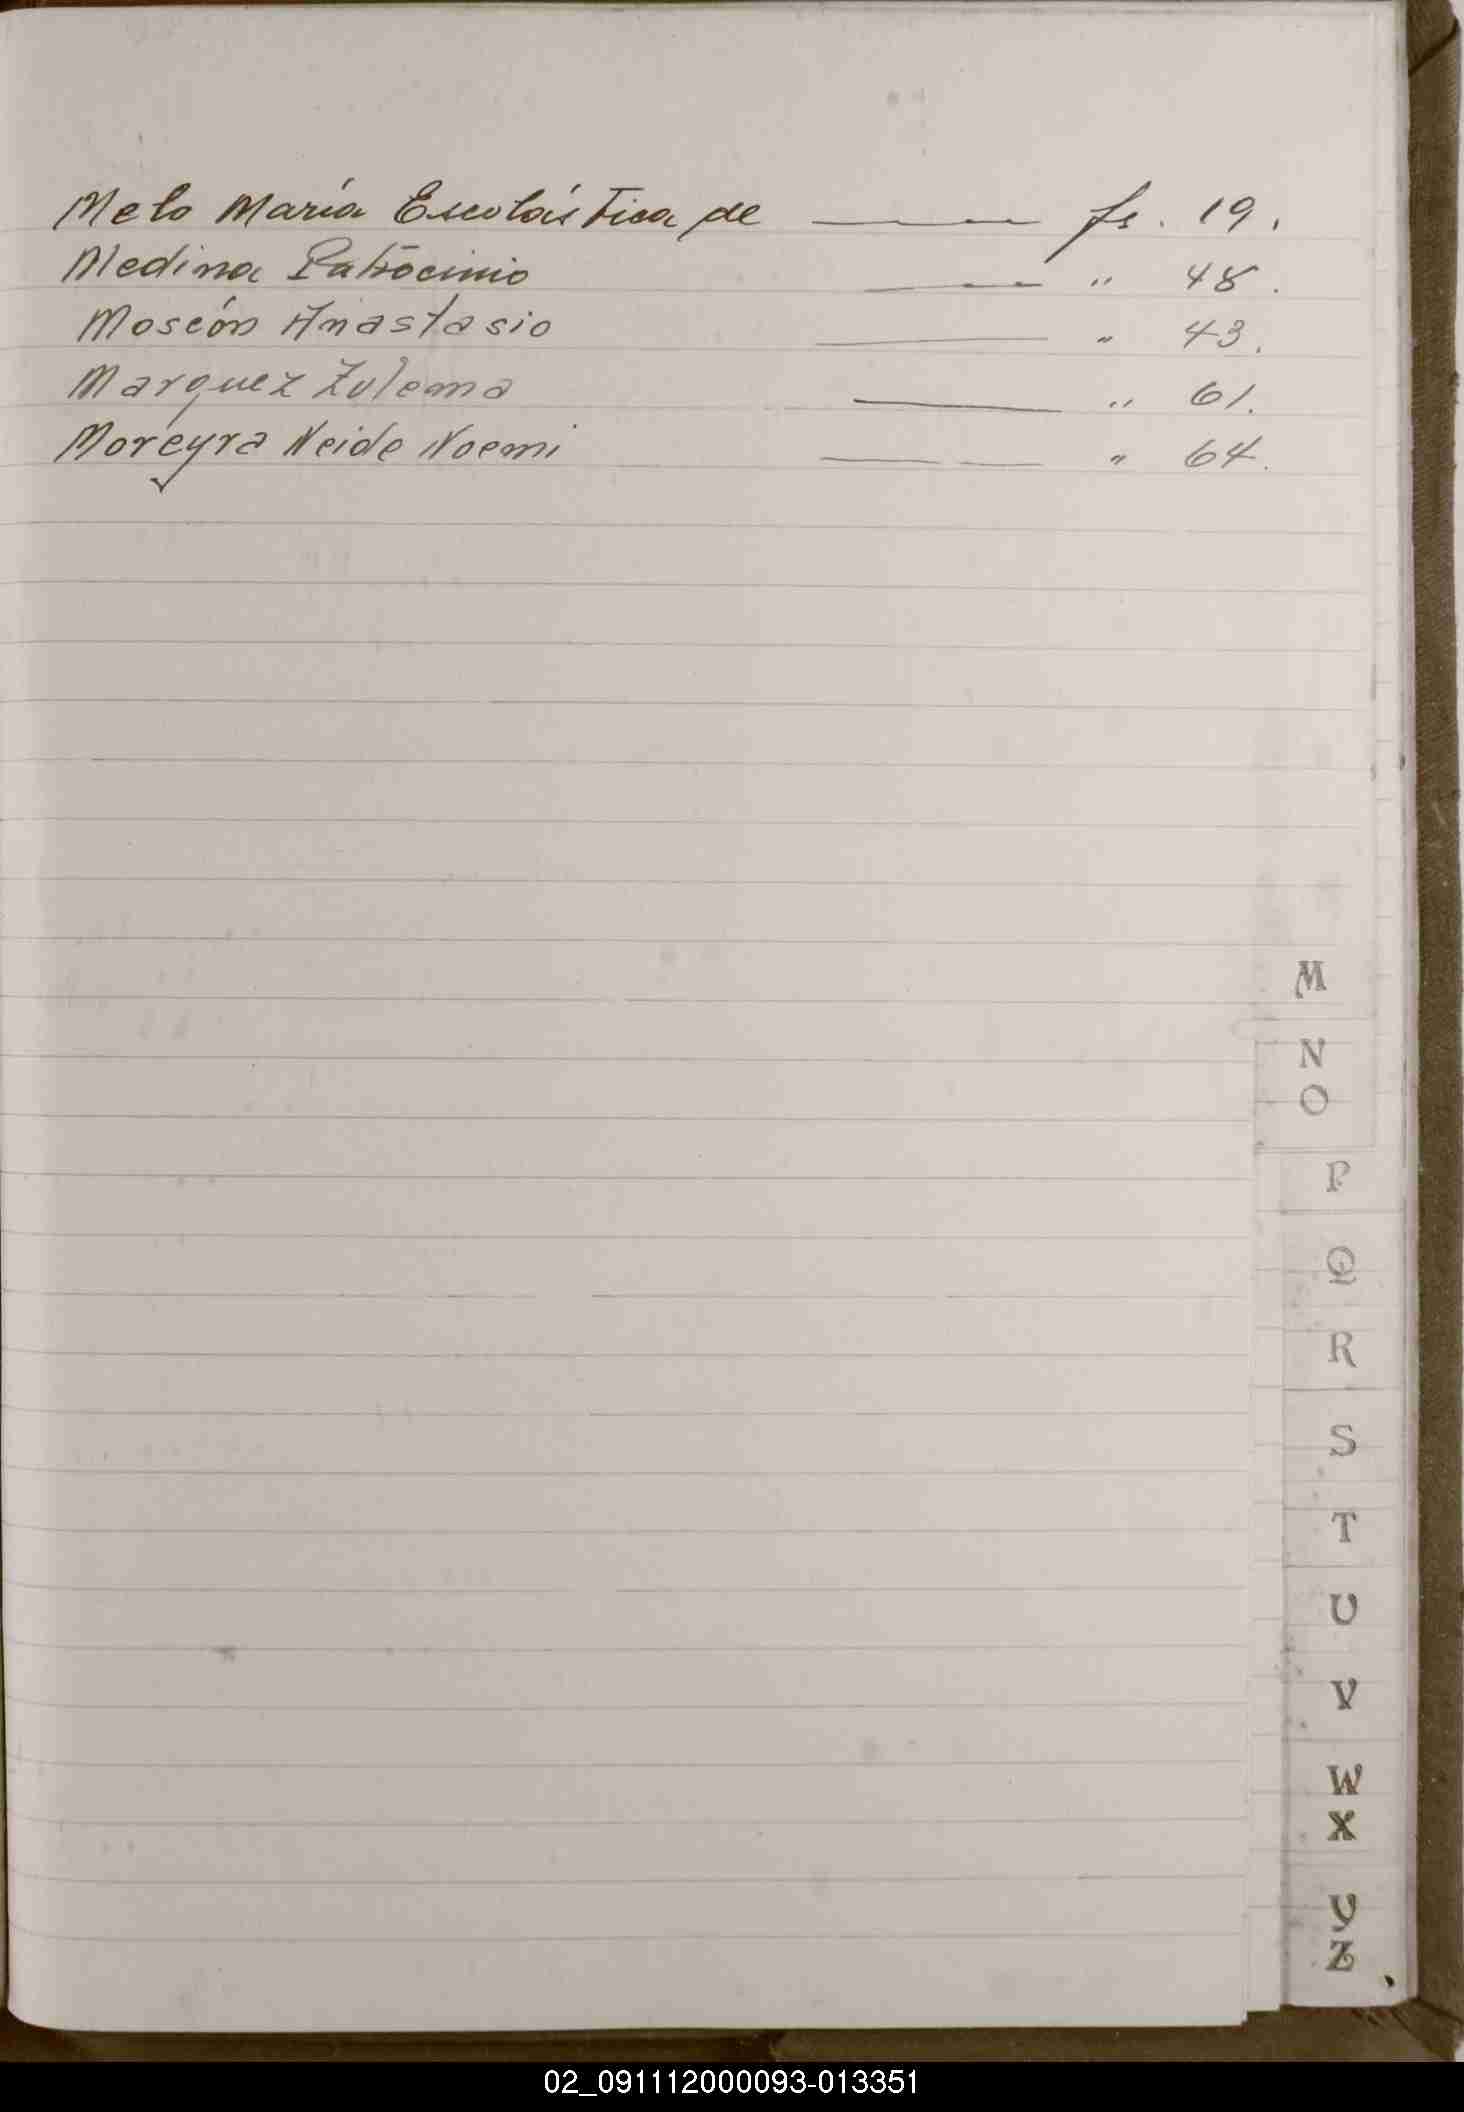 Melo María Escolástica de — fs. 19.
Medina Patrocinio — " 48.
Moscón Anastasio — " 43.
Marquez Zulema — " 61.
Moreyra Neide Noemi — " 64.
M
N
O
P
Q
R
S
T
U
V
W
X
Y
Z
02_091112000093-013351